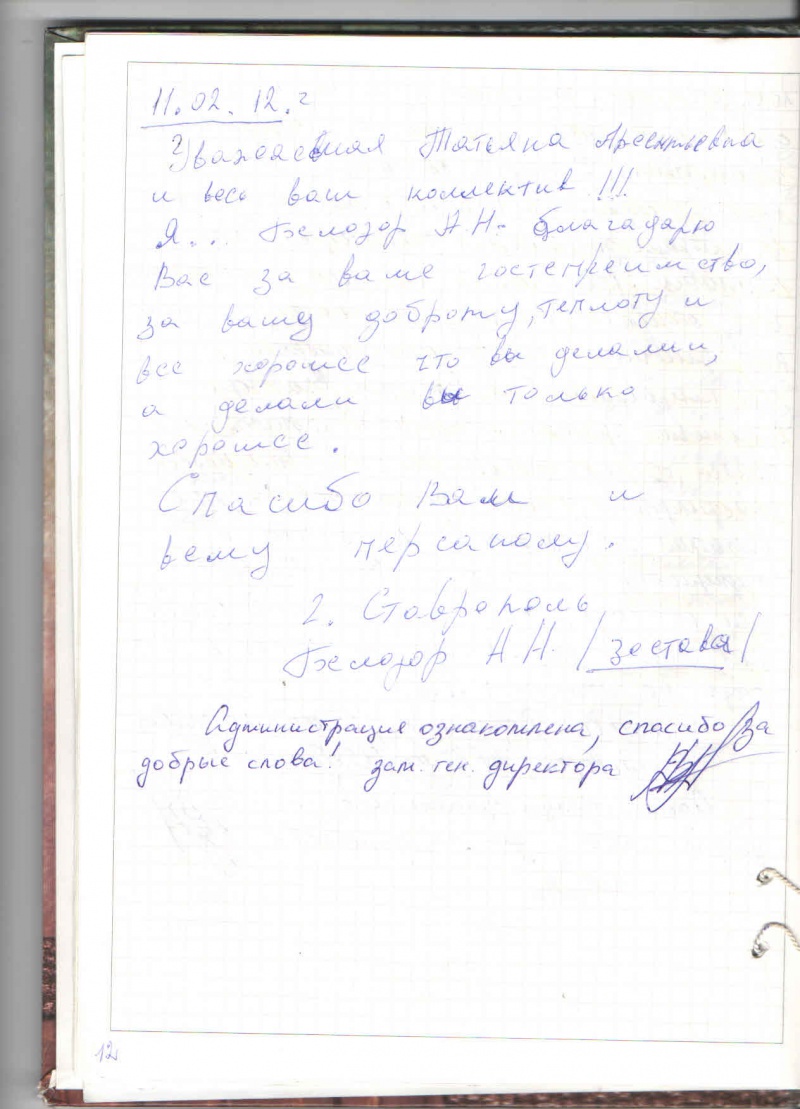 11.02.12.г
Уважаемая Татьяна Арсентьевна
и весь ваш коллектив!!!
Я... Белозор А Н- благадарю
Вас за ваше гостепреимство,
за вашу доброту, теплоту и
все хорошее что вы делали,
а делали вы только
хорошее.
Спасибо Вам и
вему персаналу.
г. Ставрополь
Белозор А Н. /застава/
Администрация ознакомлена, спасибо за
добрые слова! зам. ген. директора
12